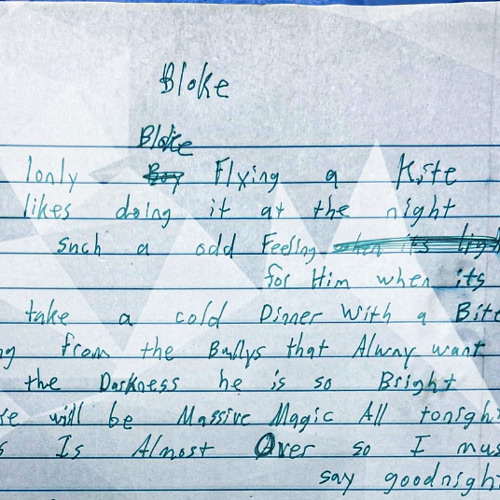 Bloke
Bloke
lonly Boy Flying a Kite
likes doing it at the night
such a odd Feeling when its ligh
for Him when its
take a cold Dinner With a Bite
ng from the Bullys that Alway want
the Darkness he is so Bright
re will be Massive Magic All tonigh
s Is Almost Over so I mus
say goodnigh